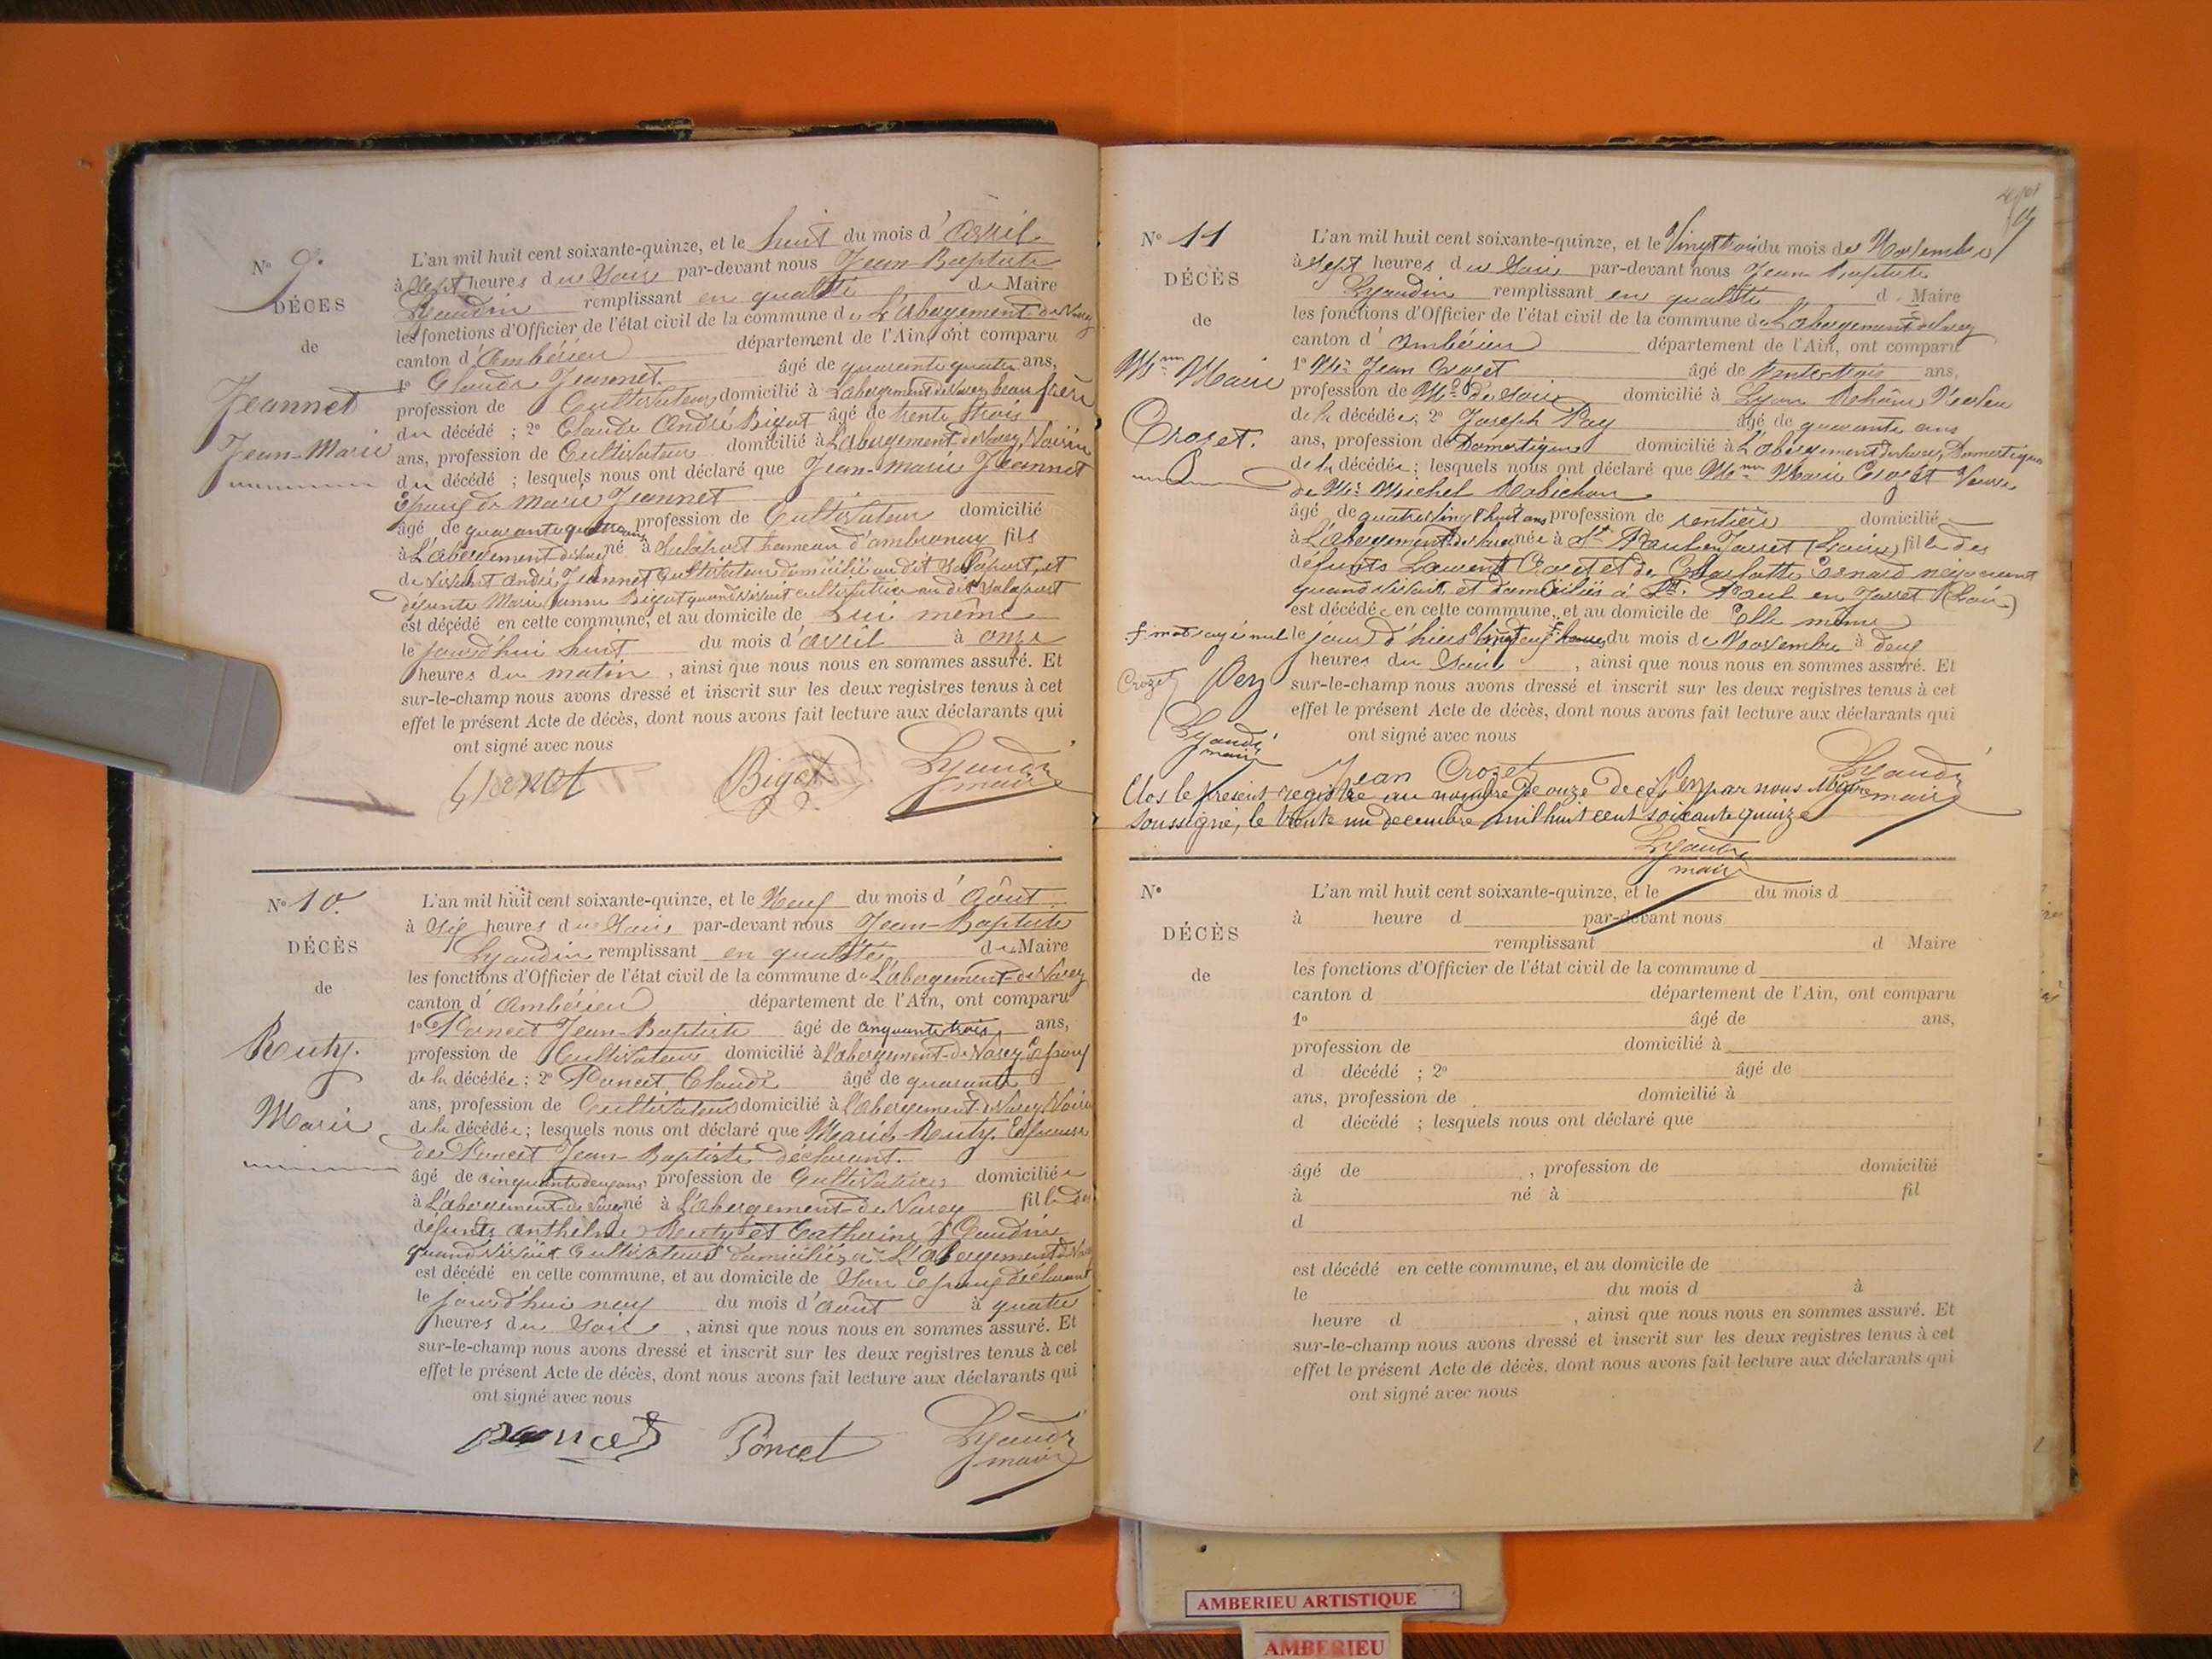 N° 9.
DÉCES
de
Jeannet
Jean-Marie
L'an mil huit cent soixante-quinze, et le huit du mois d'Avril
à Sept heures du Soir par-devant nous Jean-Baptiste
Lyaudin remplissant en qualité de Maire
les fonctions d'Officier de l'état civil de la commune de L'abergement-de-Varey
canton d'Ambérieu département de l'Ain, ont comparu
1° Claude Jeannet âgé de quarante quatre ans,
profession de Cultivateur domicilié à Labergement de Varey beau frère
du décédé ; 2° Claude André Bigot âgé de trente trois
ans, profession de Cultivateur domicilié à L'abergement de Varey Voisin
du décédé ; lesquels nous ont déclaré que Jean-Marie Jeannet
Epoux de Marie Jeannet
âgé de quarante quatre ans profession de Cultivateur domicilié
à L'abergement de Varey né à Salaport hameau d'ambronay fils
de vivant André Jeannet Cultivateur domicilié au dit Salaport, et
défunte Marie Bigot quand vivait cultivatrice au dit Salaport
est décédé en cette commune, et au domicile de Lui même
le jourd'hui huit du mois d'avril à onze
heures du matin, ainsi que nous nous en sommes assuré. Et
sur-le-champ nous avons dressé et inscrit sur les deux registres tenus à cet
effet le présent Acte de décès, dont nous avons fait lecture aux déclarants qui
ont signé avec nous
Bigot Lyaudin
maire
N° 10.
DÉCÈS
de
Ruty.
Marie
L'an mil huit cent soixante-quinze, et le Neuf du mois d'Août
à Six heures du Soir par-devant nous Jean-Baptiste
Lyaudin remplissant en qualité de Maire
les fonctions d'Officier de l'état civil de la commune de L'abergement-de-Varey
canton d'Ambérieu département de l'Ain, ont comparu
1° Poncet Jean-Baptiste âgé de cinquante trois ans,
profession de Cultivateur domicilié à L'abergement-de-Varey Epoux
de la décédée ; 2° Poncet Claude âgé de quarante
ans, profession de Cultivateur domicilié à l'abergement-de-Varey Voisin
de la décédée ; lesquels nous ont déclaré que Marie Ruty. Epouse
de Poncet Jean-Baptiste déclarant.
âgé de cinquante deux ans profession de Cultivatrice domiciliée
à L'abergement-de-Varey né à L'abergement-de-Varey fille des
défunts Anthelme Ruty et Catherine Gaudin
quand vivait Cultivateurs domiciliés à L'abergement de Varey
est décédé en cette commune, et au domicile de Son Epoux déclarant
le jourd'hui neuf du mois d'août à quatre
heures du Soir, ainsi que nous nous en sommes assuré. Et
sur-le-champ nous avons dressé et inscrit sur les deux registres tenus à cet
effet le présent Acte de décès, dont nous avons fait lecture aux déclarants qui
ont signé avec nous
poncet Poncet Lyaudin
maire
N° 11
DÉCÈS
de
Mme Marie
Crozet.
L'an mil huit cent soixante-quinze, et le Vingt trois du mois de Novembre
à Sept heures du Soir par-devant nous Jean-Baptiste
Lyaudin remplissant en qualité de Maire
les fonctions d'Officier de l'état civil de la commune de L'abergement de Varey
canton d'Ambérieu département de l'Ain, ont comparu
1° Mr Jean Crozet âgé de trente trois ans,
profession de Md de Soie domicilié à Lyon Rhône, Neveu
de la décédée ; 2° Joseph Pey âgé de quarante ans
ans, profession de Domestique domicilié à L'abergement de Varey, Domestique
de la décédée ; lesquels nous ont déclaré que Mme Marie Crozet Veuve
de Mr Michel Robichon
âgé de quatre vingt huit ans profession de rentière domicilié
à L'abergement de Varey née à St Paul en Jarret (Loire) fille des
défunts Laurent Crozet et de Charlotte negociant
quand vivait et domiciliés à St. Paul en Jarret (Loire)
est décédée en cette commune, et au domicile de Elle même
mot rayé nul le jour d'hier Vingt deux du mois de Novembre à deux
heures du Soir, ainsi que nous nous en sommes assuré. Et
Crozet Pey sur-le-champ nous avons dressé et inscrit sur les deux registres tenus à cet
effet le présent Acte de décès, dont nous avons fait lecture aux déclarants qui
Lyaudin
maire
ont signé avec nous
Jean Crozet Lyaudin
maire
Clos le présent registre au nombre de onze décès, par nous Maire
soussigné, le trente un decembre mil huit cent soixante quinze
Lyaudin
maire
N°
DÉCÈS
de
L'an mil huit cent soixante-quinze, et le du mois d
à heure d par-devant nous
remplissant d Maire
les fonctions d'Officier de l'état civil de la commune d
canton d département de l'Ain, ont comparu
1° âgé de ans,
profession de domicilié à
d décédé ; 2° âgé de
ans, profession de domicilié à
d décédé ; lesquels nous ont déclaré que
âgé de , profession de domicilié
à né à fil
d
est décédé en cette commune, et au domicile de
le du mois d à
heure d , ainsi que nous nous en sommes assuré. Et
sur-le-champ nous avons dressé et inscrit sur les deux registres tenus à cet
effet le présent Acte de décès, dont nous avons fait lecture aux déclarants qui
ont signé avec nous
AMBERIEU ARTISTIQUE
AMBERIEU